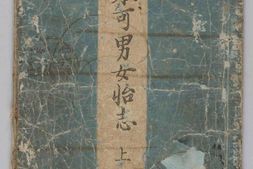 可男女怡志 上